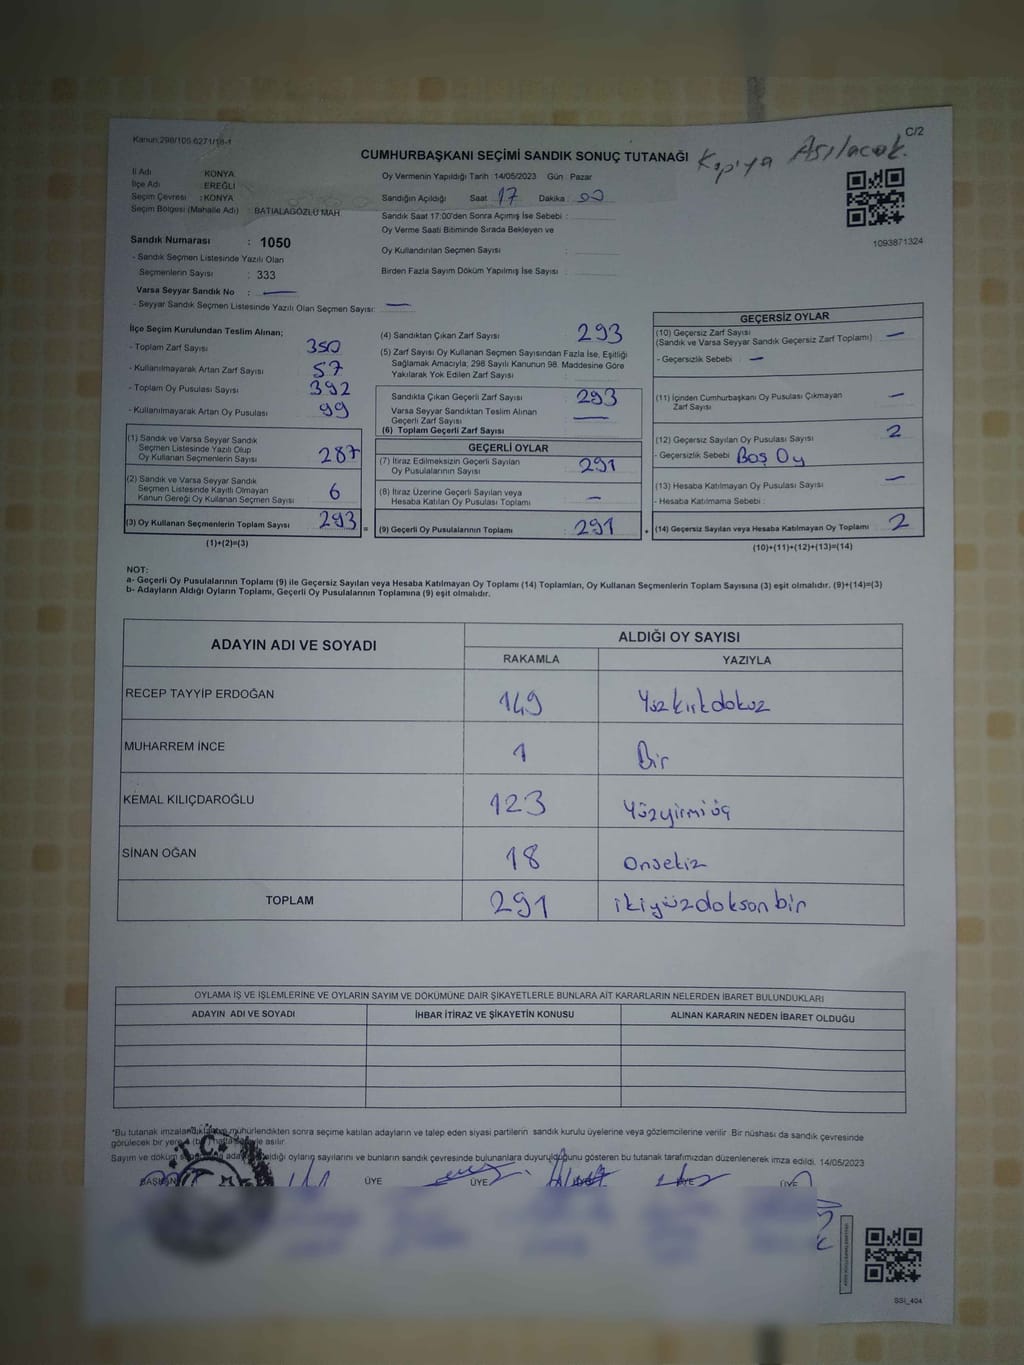 Kanun:298/105 6271/18-1
C/2
CUMHURBAŞKANI SEÇİMİ SANDIK SONUÇ TUTANAĞI
Kapıya Asılacak.
İl Adı KONYA
İlçe Adı EREĞLİ
Seçim Çevresi : KONYA
Seçim Bölgesi (Mahalle Adı) : BATIALAGÖZLÜ MAH
Sandık Numarası : 1050
- Sandık Seçmen Listesinde Yazılı Olan
Seçmenlerin Sayısı : 333
Varsa Seyyar Sandık No : —
- Seyyar Sandık Seçmen Listesinde Yazılı Olan Seçmen Sayısı: —
Oy Vermenin Yapıldığı Tarih :14/05/2023 Gün Pazar
Sandığın Açıldığı Saat 17 Dakika : 00
Sandık Saat 17:00'den Sonra Açılmış İse Sebebi :
Oy Verme Saati Bitiminde Sırada Bekleyen ve
Oy Kullandırılan Seçmen Sayısı :
Birden Fazla Sayım Döküm Yapılmış İse Sayısı :
1093871324
İlçe Seçim Kurulundan Teslim Alınan;
- Toplam Zarf Sayısı 350
- Kullanılmayarak Artan Zarf Sayısı 57
- Toplam Oy Pusulası Sayısı 392
- Kullanılmayarak Artan Oy Pusulası 99
(1) Sandık ve Varsa Seyyar Sandık
Seçmen Listesinde Yazılı Olup
Oy Kullanan Seçmenlerin Sayısı 287
(2) Sandık ve Varsa Seyyar Sandık
Seçmen Listesinde Kayıtlı Olmayan
Kanun Gereği Oy Kullanan Seçmen Sayısı 6
(3) Oy Kullanan Seçmenlerin Toplam Sayısı 293 =
(1)+(2)=(3)
(4) Sandıktan Çıkan Zarf Sayısı 293
(5) Zarf Sayısı Oy Kullanan Seçmen Sayısından Fazla İse, Eşitliği
Sağlamak Amacıyla; 298 Sayılı Kanunun 98. Maddesine Göre
Yakılarak Yok Edilen Zarf Sayısı :
Sandıkta Çıkan Geçerli Zarf Sayısı 293
Varsa Seyyar Sandıktan Teslim Alınan
Geçerli Zarf Sayısı —
(6) Toplam Geçerli Zarf Sayısı
GEÇERLİ OYLAR
(7) İtiraz Edilmeksizin Geçerli Sayılan
Oy Pusulalarının Sayısı 291
(8) İtiraz Üzerine Geçerli Sayılan veya
Hesaba Katılan Oy Pusulası Toplamı —
(9) Geçerli Oy Pusulalarının Toplamı 291 +
GEÇERSİZ OYLAR
(10) Geçersiz Zarf Sayısı
(Sandık ve Varsa Seyyar Sandık Geçersiz Zarf Toplamı) —
- Geçersizlik Sebebi : —
(11) İçinden Cumhurbaşkanı Oy Pusulası Çıkmayan
Zarf Sayısı —
(12) Geçersiz Sayılan Oy Pusulası Sayısı 2
- Geçersizlik Sebebi Boş Oy
(13) Hesaba Katılmayan Oy Pusulası Sayısı —
- Hesaba Katılmama Sebebi :
(14) Geçersiz Sayılan veya Hesaba Katılmayan Oy Toplamı 2
(10)+(11)+(12)+(13)=(14)
NOT:
a- Geçerli Oy Pusulalarının Toplamı (9) ile Geçersiz Sayılan veya Hesaba Katılmayan Oy Toplamı (14) Toplamları, Oy Kullanan Seçmenlerin Toplam Sayısına (3) eşit olmalıdır. (9)+(14)=(3)
b- Adayların Aldığı Oyların Toplamı, Geçerli Oy Pusulalarının Toplamına (9) eşit olmalıdır.
ADAYIN ADI VE SOYADI ALDIĞI OY SAYISI
RAKAMLA YAZIYLA
RECEP TAYYİP ERDOĞAN 149 Yüzkırkdokuz
MUHARREM İNCE 1 Bir
KEMAL KILIÇDAROĞLU 123 Yüzyirmiüç
SİNAN OĞAN 18 Onsekiz
TOPLAM 291 ikiyüzdoksanbir
OYLAMA İŞ VE İŞLEMLERİNE VE OYLARIN SAYIM VE DÖKÜMÜNE DAİR ŞİKAYETLERLE BUNLARA AİT KARARLARIN NELERDEN İBARET BULUNDUKLARI
ADAYIN ADI VE SOYADI İHBAR İTİRAZ VE ŞİKAYETİN KONUSU ALINAN KARARIN NEDEN İBARET OLDUĞU
*Bu tutanak mühürlendikten sonra seçime katılan adayların ve talep eden siyasi partilerin sandık kurulu üyelerine veya gözlemcilerine verilir. Bir nüshası da sandık çevresinde
görülecek bir yere asılır.
Sayım ve döküm oyların sayılarını ve bunların sandık çevresinde bulunanlara duyurulduğunu gösteren bu tutanak tarafımızdan düzenlenerek imza edildi. 14/05/2023
BAŞKAN ÜYE ÜYE ÜYE ÜYE
T.C.
SSİ_404